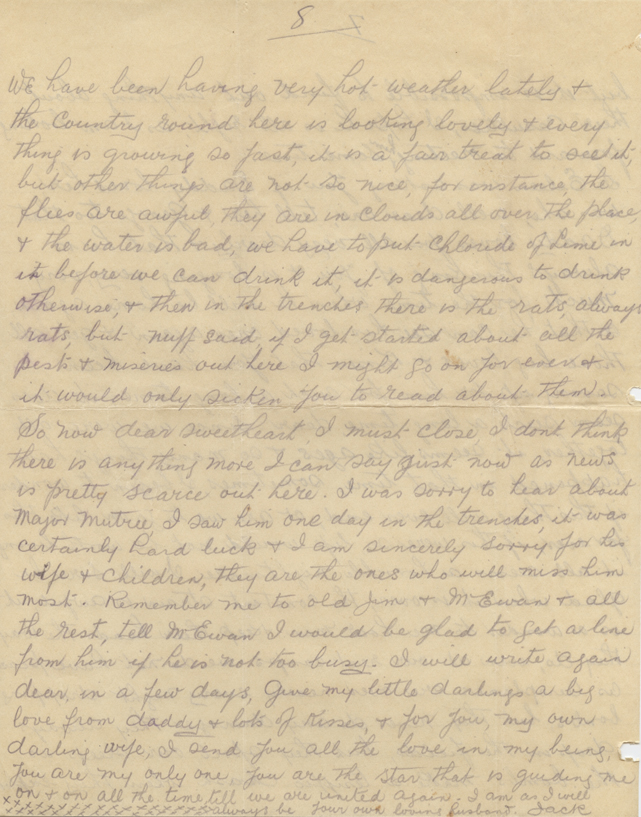 8
We have been having very hot weather lately &
the Country round here is looking lovely & every
thing is growing so fast, it is a fair treat to see it,
but other things are not so nice, for instance, the
flies are awful, they are in clouds all over the place,
& the water is bad, we have to put Chloride of Lime in
it before we can drink it, it is dangerous to drink
otherwise, & then in the trenches there is the rats, always
rats, but nuff said, if I get started about all the
pests & miseries out here I might go on for ever &
it would only sicken you to read about them.
So now dear sweetheart I must close, I dont think
there is anything more I can say just now as news
is pretty scarce out here. I was sorry to hear about
Major Mutrie I saw him one day in the trenches, it was
certainly hard luck & I am sincerely sorry for his
wife & children, they are the ones who will miss him
most. Remember me to old Jim & McEwan & all
the rest, tell McEwan I would be glad to get a line
from him if he is not too busy. I will write again
dear, in a few days, Give my little darlings a big
love from daddy & lots of kisses, & for you, my own
darling wife, I send you all the love in my being,
you are my only one, you are the star that is guiding me
on & on all the time, till we are united again. I am as I will
always be your own loving husband. Jack